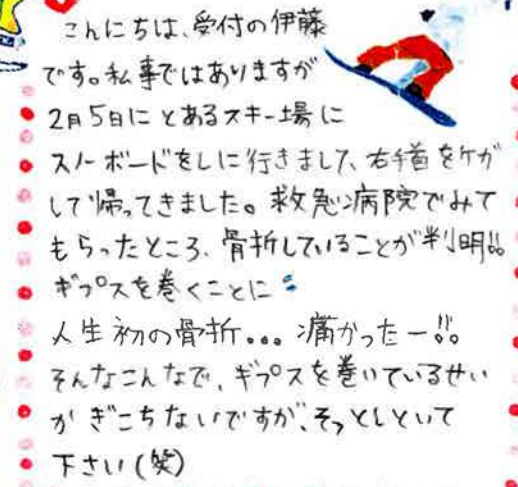 こんにちは、受付の伊藤
です。私事ではありますが
2月5日に とあるスキー場に
スノーボードをしに行きまして、右手首をケガ
して帰ってきました。救急病院でみて
もらったところ、骨折していることが判明!!
ギプスを巻くことに
人生初の骨折... 痛かったー!!
そんなこんなで、ギプスを巻いているせい
か ぎこちないですが、そっとしといて
下さい(笑)